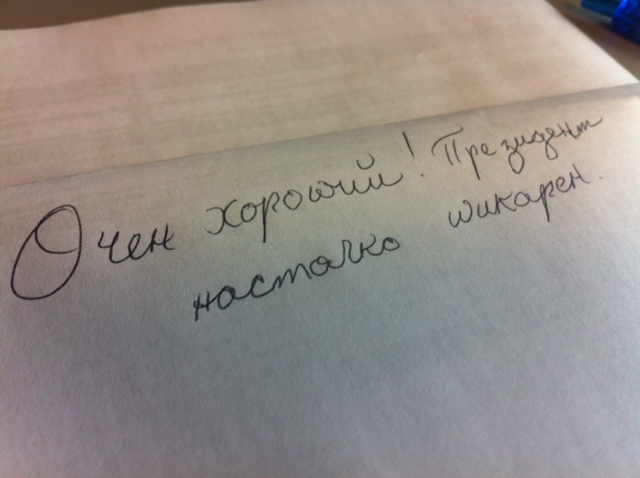 Очен хороший! Президент
настолко шикарен.